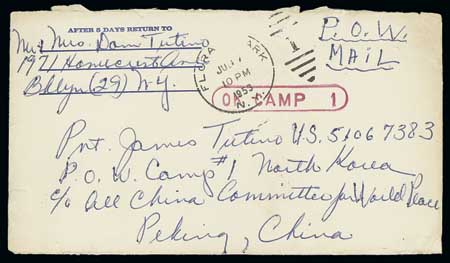 AFTER 5 DAYS RETURN TO
Mr & Mrs. Dom Tutino
1971 Homecrest Ave
Bklyn (29) N.Y.
P.O.W.
MAIL
FLORAL PARK
JUL
10 PM
1953
N.Y.
CAMP 1
Pvt. James Tutino U.S. 51067383
P.O.W. Camp #1 North Korea
c/o All China Committee for World Peace
Peking, China